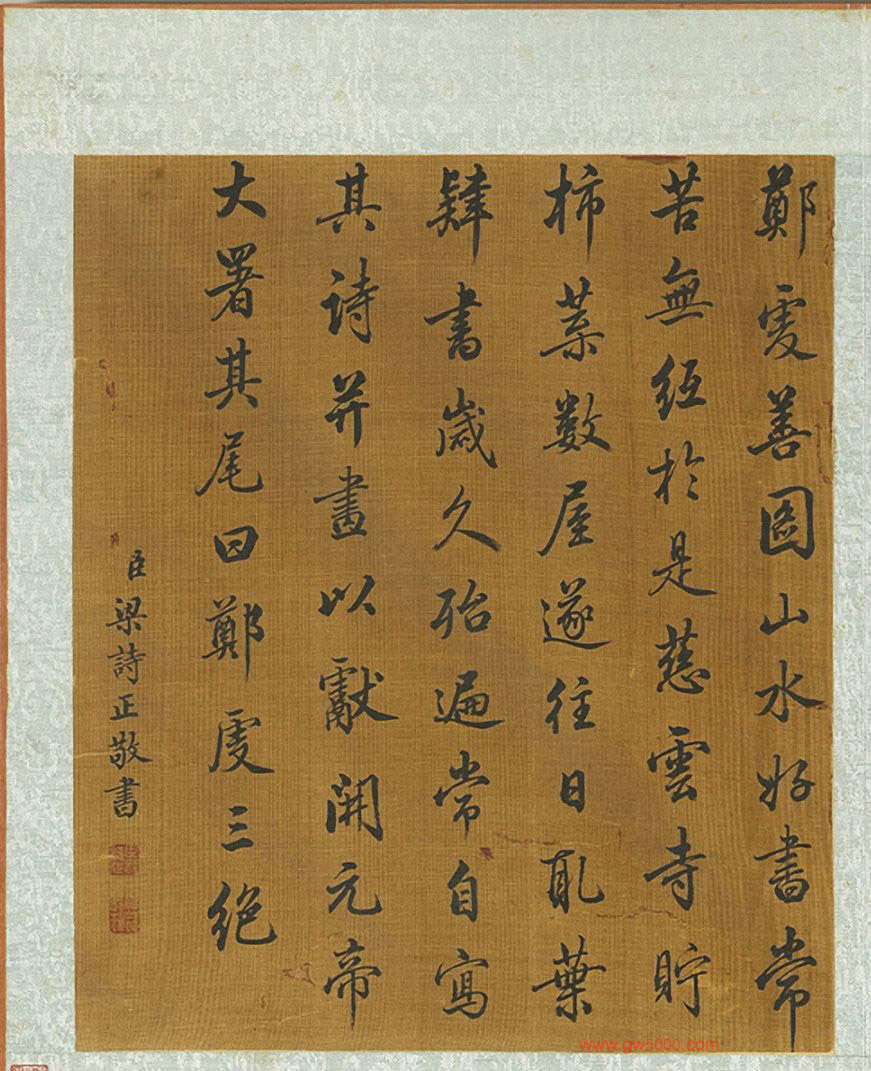 鄭虔善圖山水好書常
苦無紙於是慈雲寺貯
柿葉數屋遂往日取葉
肄書歲久殆遍常自寫
其詩并畫以獻開元帝
大署其尾曰鄭虔三絕
臣梁詩正敬書
www.gw5000.com